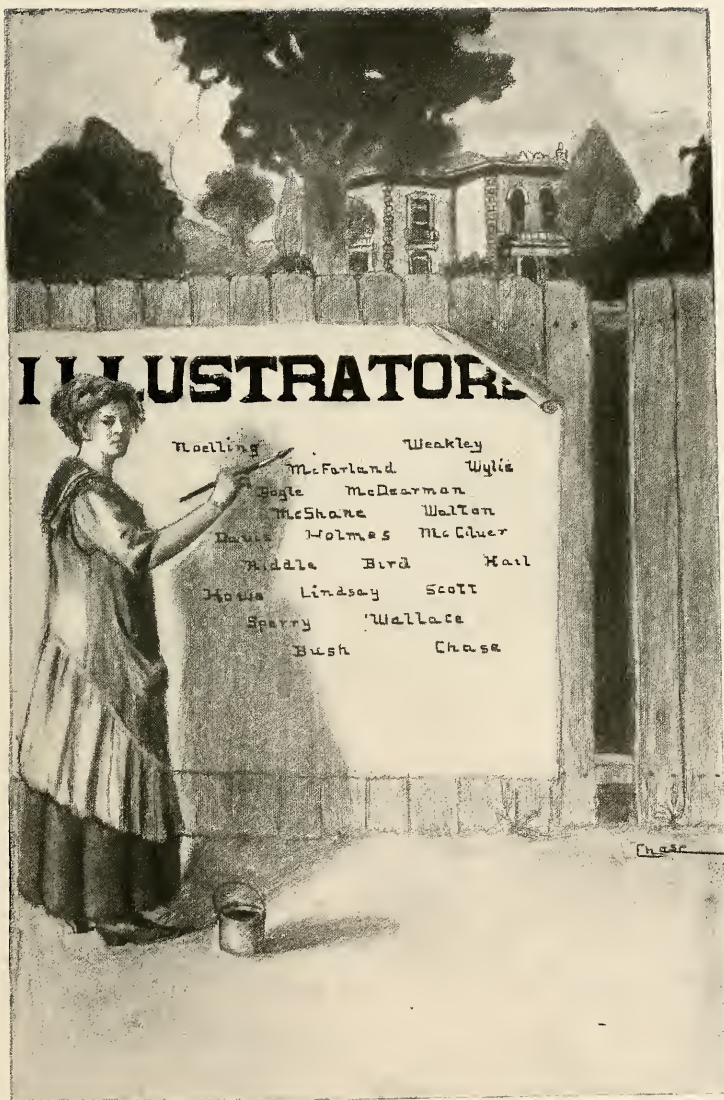 ILLUSTRATORS
Noelling Weakley
McFarland Wylie
Bogle McDearman
McShane Walton
Davis Holmes McCluer
Riddle Bird Hail
Howe Lindsay Scott
Sperry Wallace
Bush Chase
Chase